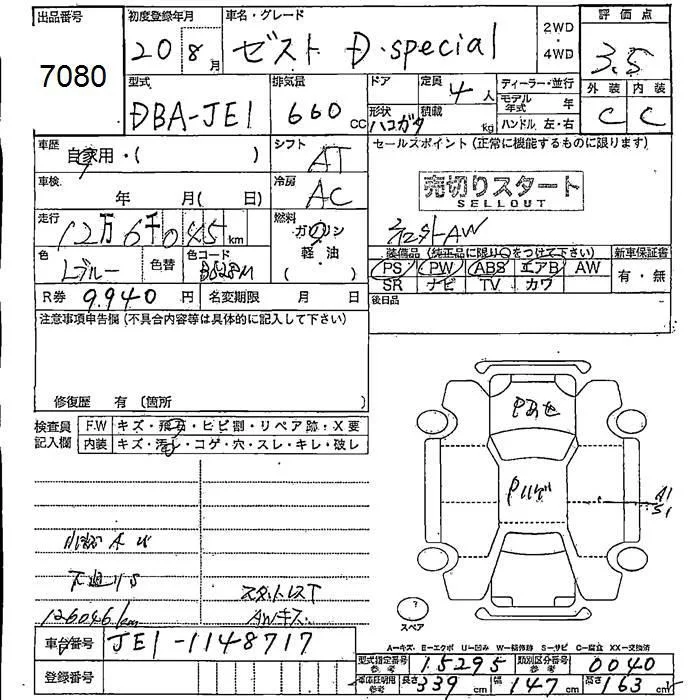 出品番号
7080
初度登録年月
20 8月
車名・グレード
ゼスト D・special
2WD
・
4WD
評価点
3.5
外装 内装
C C
型式
DBA-JE1
排気量
660 CC
ドア
形状
ハコガタ
定員
4人
積載
kg
ディーラー・並行
モデル年式 年
ハンドル 左・右
車歴
自家用・( )
シフト
AT
セールスポイント(正常に機能するものに限ります)
売切りスタート
SELLOUT
車検
年 月( 日)
冷房
AC
走行
12万6千045km
燃料
ガソリン
軽・油
( )
社外AW
色
Lブルー
色替
色コード
B528M
装備品(純正品に限り○をつけて下さい)
新車保証書
PS PW ABS エアB AW
SR ナビ TV カワ
有・無
R券 9.940 円
名変期限 月 日
後日品
注意事項申告欄(不具合内容等は具体的に記入して下さい)
修復歴 有(箇所
検査員
記入欄
F.W キズ・飛石・ヒビ割・リペア跡・X要
内装 キズ・汚レ・コゲ・穴・スレ・キレ・破レ
小キズ A U
下廻りS
126046km
スタットレスT
AWキズ
Pあせ
Pハゲ
A1
S1
スペア
車台番号 JE1-1148717
登録番号
A—キズ E—エクボ U—凹み W—補修跡 S—サビ C—腐食 XX—交換済
型式指定番号
参考
15295
類別区分番号
参考
0040
車庫証明用
参考
長さ 339 cm
幅 147 cm
高さ 163 cm